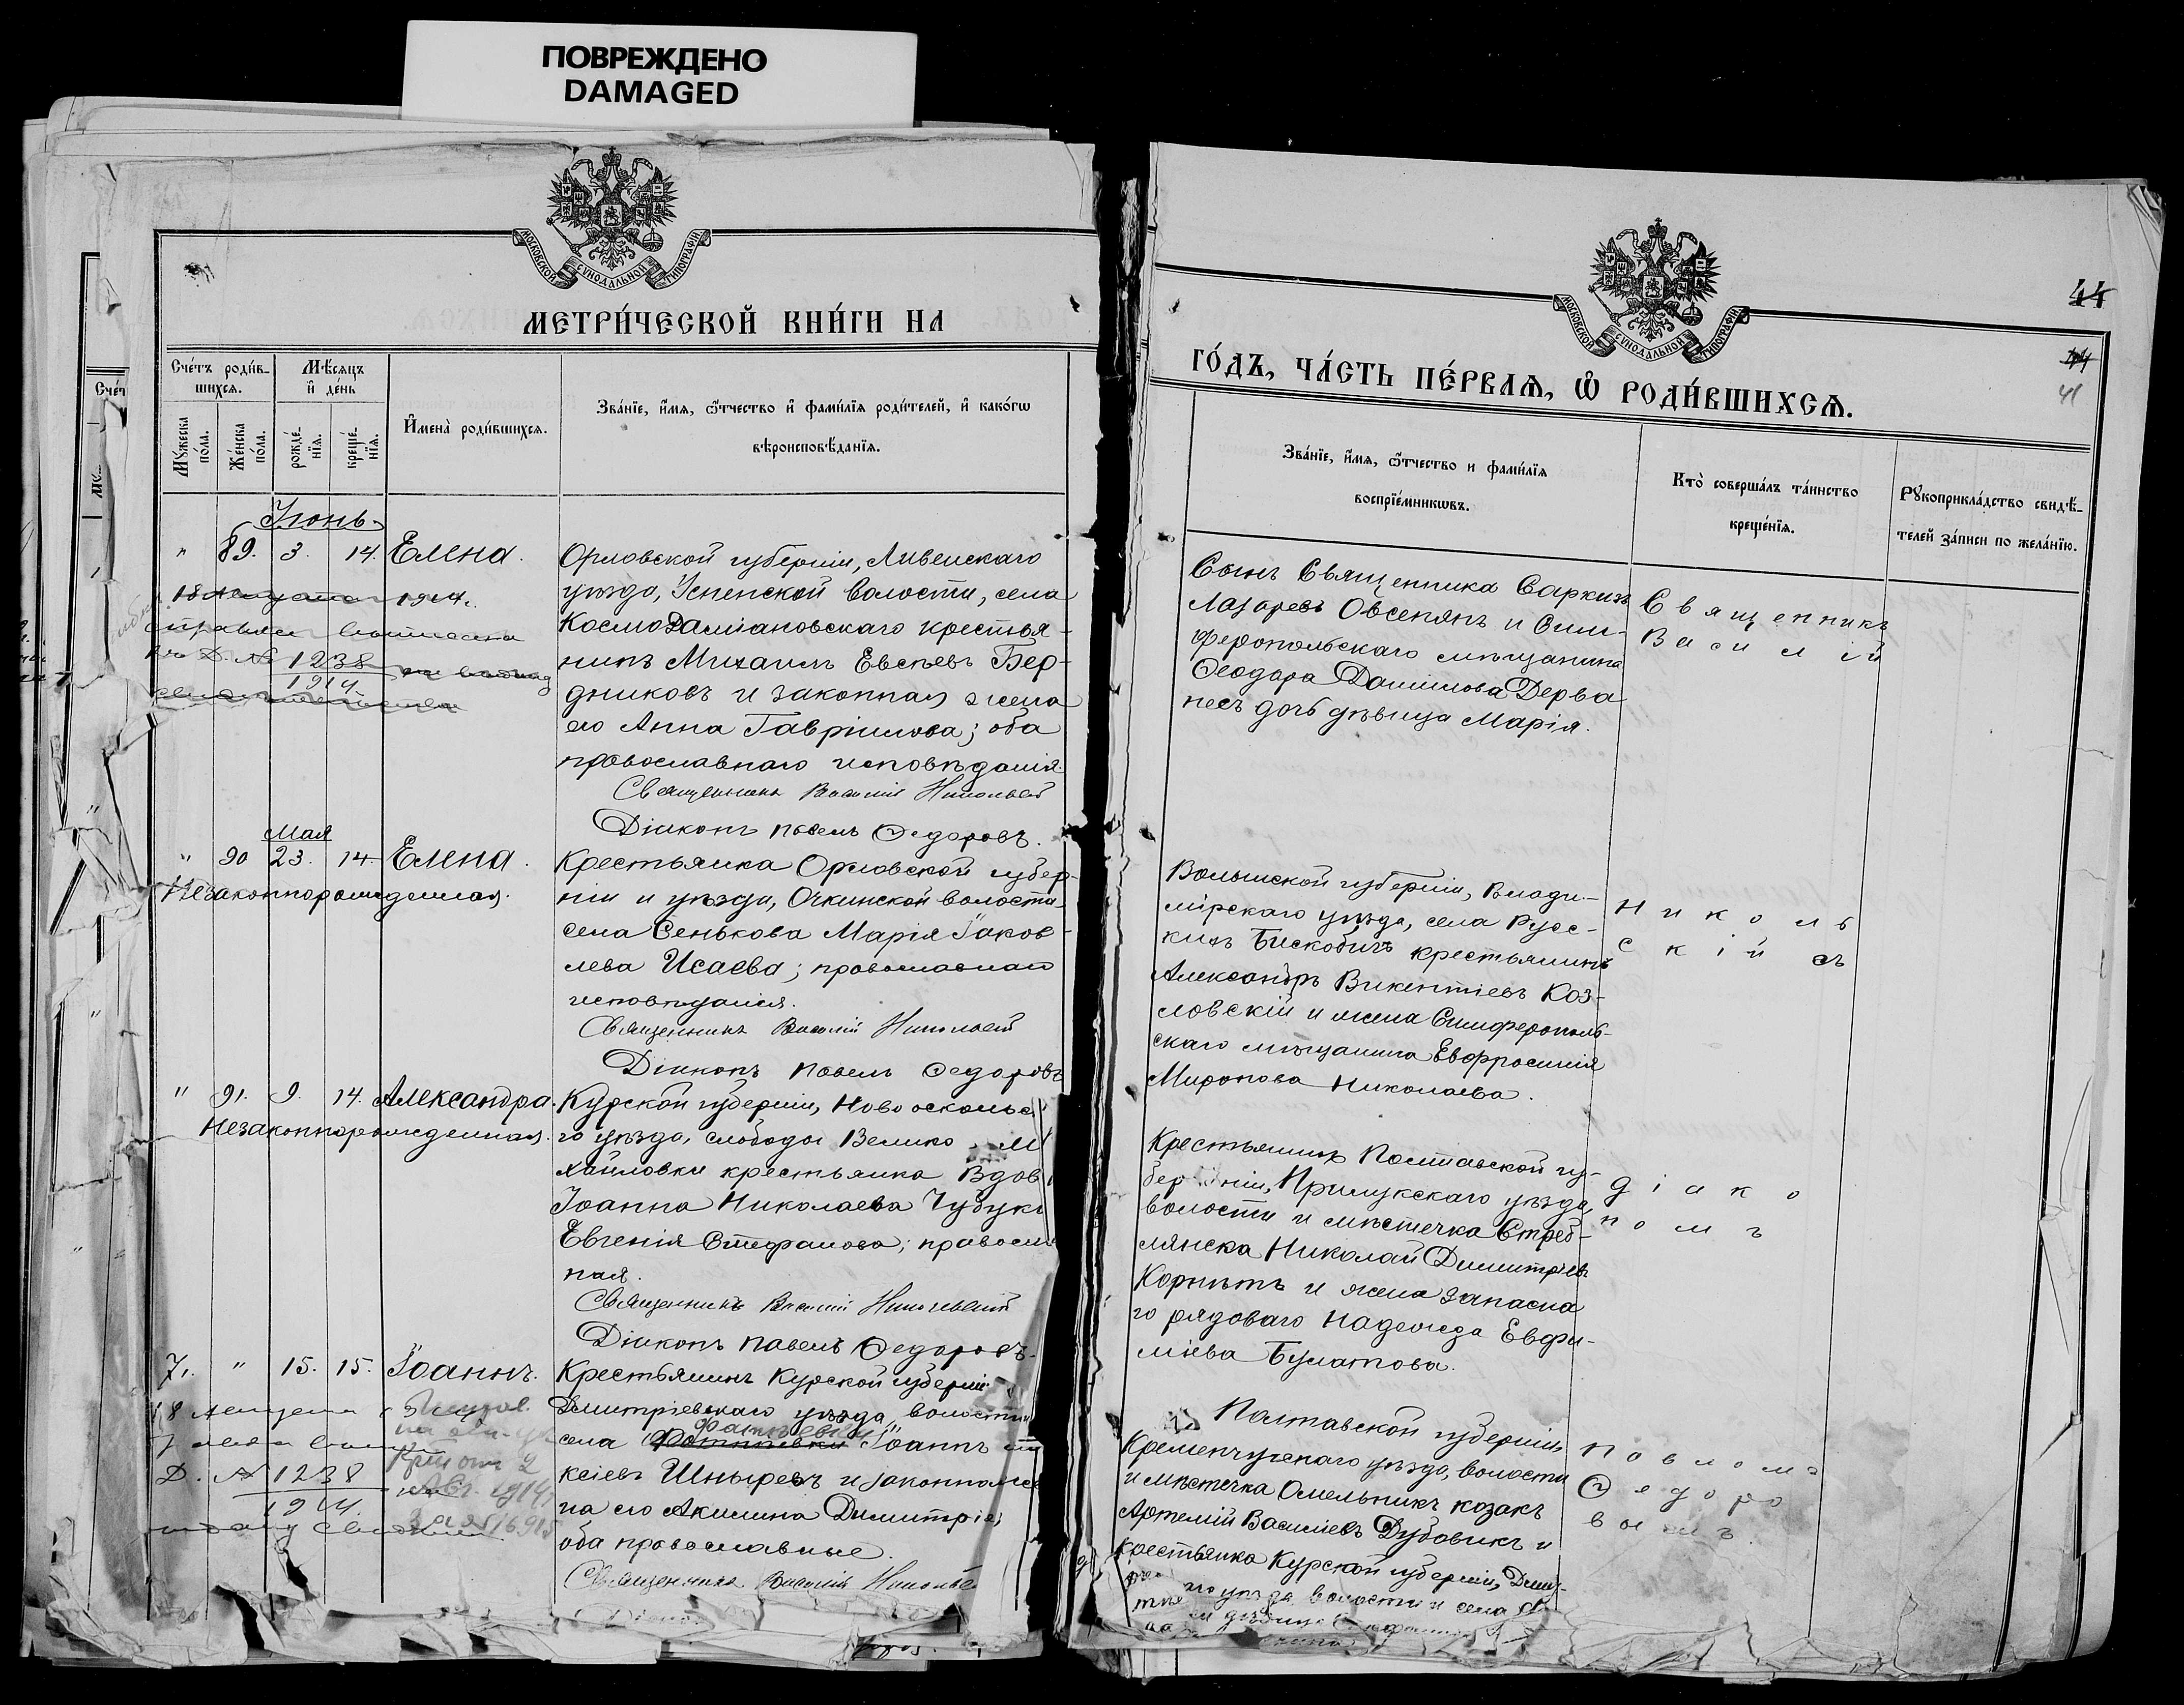 ПОВРЕЖДЕНО
DAMAGED
МОСКОВСКОЙ СѴНОДАЛЬНОЙ ТИПОГРАФІИ
МЕТРИ́ЧЕСКОЙ КНИ́ГИ НА
Сче́тъ роди́в-
шихся.
Мѣ́сяцъ
и҆ де́нь
Мꙋ́жеска
по́ла.
Же́нска
по́ла.
рожде́-
нїѧ.
креще́-
нїѧ.
И҆мена̀ роди́вшихсѧ.
Зва́нїе, и҆́мѧ, ѻ҆́тчество и҆ фами́лїѧ роди́телей, и҆ како́гѡ
вѣроисповѣ́данїѧ.
Іюнь
" 89. 3. 14. Елена.
Орловской губерніи, Ливенскаго
уѣзда, Успенской волости, села
Космодаміановскаго крестья-
нинъ Михаилъ Евсѣевъ Бер-
дниковъ и законная жена
его Анна Гавріилова; оба
православнаго исповѣданія.
Священникъ Василій Никольскій
Діаконъ Павелъ Федоровъ.
1914.
Д. № 1238
1914
Мая
" 90 23. 14. Елена.
Незаконнорожденная.
Крестьянка Орловской губер-
ніи и уѣзда, Очкинской волости
села Сенькова Марія Іаков-
лева Исаева; православнаго
исповѣданія.
Священникъ Василій Никольскій
Діаконъ Павелъ Федоровъ
" 91. 9. 14. Александра.
Незаконнорожденная.
Курской губерніи, Новооскольс
го уѣзда, слободы Велико Ми
хайловки крестьянка вдов
Іоанна Николаева Чубук
Евгенія Стефанова; правосл
ная.
Священникъ Василій Никольскій
Діаконъ Павелъ Федоровъ.
7. " 15. 15. Іоаннъ.
Крестьянинъ Курской губерніи
Дмитріевскаго уѣзда, волости
села Іоаннъ
ксіевъ Шныревъ и законная же
на его Акилина Димитріе
оба православные.
Священникъ Василій Никольс
Д. № 1238
1914.
44
41
МОСКОВСКОЙ СѴНОДАЛЬНОЙ ТИПОГРАФІИ
ГО́ДЪ, ЧА́СТЬ ПЕ́РВАѦ, Ѡ҆ РОДИ́ВШИХСѦ.
Зва́нїе, и҆́мѧ, ѻ҆́тчество и фами́лїѧ
воспрїе́мникѡвъ.
Кто̀ соверша́лъ та́инство
креще́нїѧ.
Рꙋкоприкла́дство свидѣ́-
телей за́писи по жела́нїю.
Сынъ Священника Саркизъ
Лазаревъ Овсепянъ и Сим-
феропольскаго мѣщанина
Ѳеодора Даніилова Дерва
несъ дочь дѣвица Марія.
Священникъ
Василій
Волынской губерніи, Влади-
мірскаго уѣзда, села Русс-
кихъ Бискобичъ крестьянинъ
Александръ Викентіевъ Коз-
ловскій и жена Симферополь-
скаго мѣщанина Евфросинія
Миронова Николаева.
Николь
скій съ
Крестьянинъ Полтавской гу-
берніи, Прилукскаго уѣзда,
волости и мѣстечка Стреб-
лянска Николай Димитріевъ
Корнѣтъ и жена запасна
го рядоваго Надежда Евфи-
міева Булатова.
діако
номъ
Полтавской губерніи
Кременчугскаго уѣзда, волости
и мѣстечка Омельникъ козакъ
Артемій Василіевъ Дубовикъ и
крестьянка Курской губерніи, Дми-
уѣзда волости и села
Павломъ
Ѳедоро
вымъ